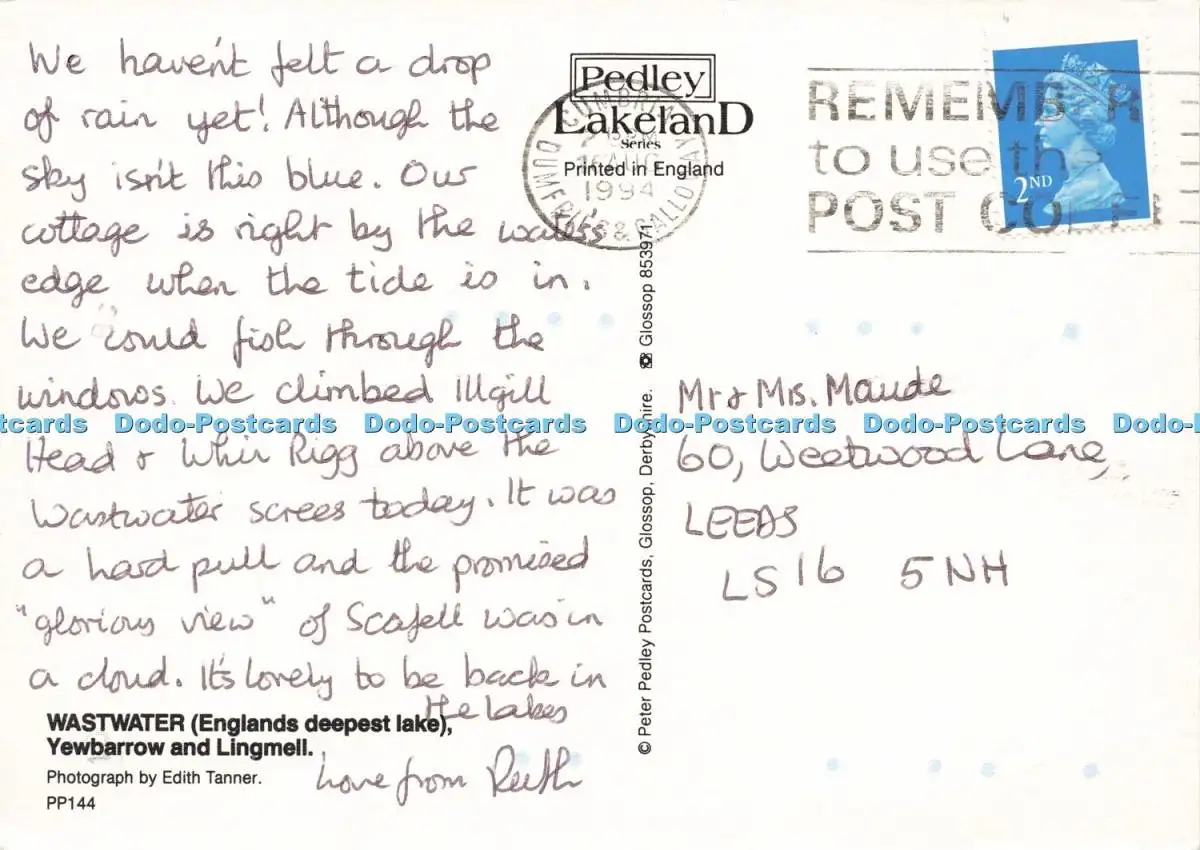 We haven't felt a drop
of rain yet! Although the
sky isn't this blue. Our
cottage is right by the water's
edge when the tide is in.
We could fish through the
windows. We climbed Illgill
Head & Whin Rigg above the
Wastwater screes today. It was
a hard pull and the promised
"glorious view" of Scafell was in
a cloud. It's lovely to be back in
the lakes
Love from Ruth
WASTWATER (Englands deepest lake),
Yewbarrow and Lingmell.
Photograph by Edith Tanner.
PP144
Pedley
LakelanD
Series
Printed in England
CUMBRIA
DUMFRIES & GALLOWAY
AUG
1994
© Peter Pedley Postcards, Glossop, Derbyshire. ☎ Glossop 853971
REMEMB R
to use th
POST CO E
2ND
Mr & Mrs. Maude
60, Weetwood Lane,
LEEDS
LS16 5NH
Dodo-Postcards Dodo-Postcards Dodo-Postcards Dodo-Postcards